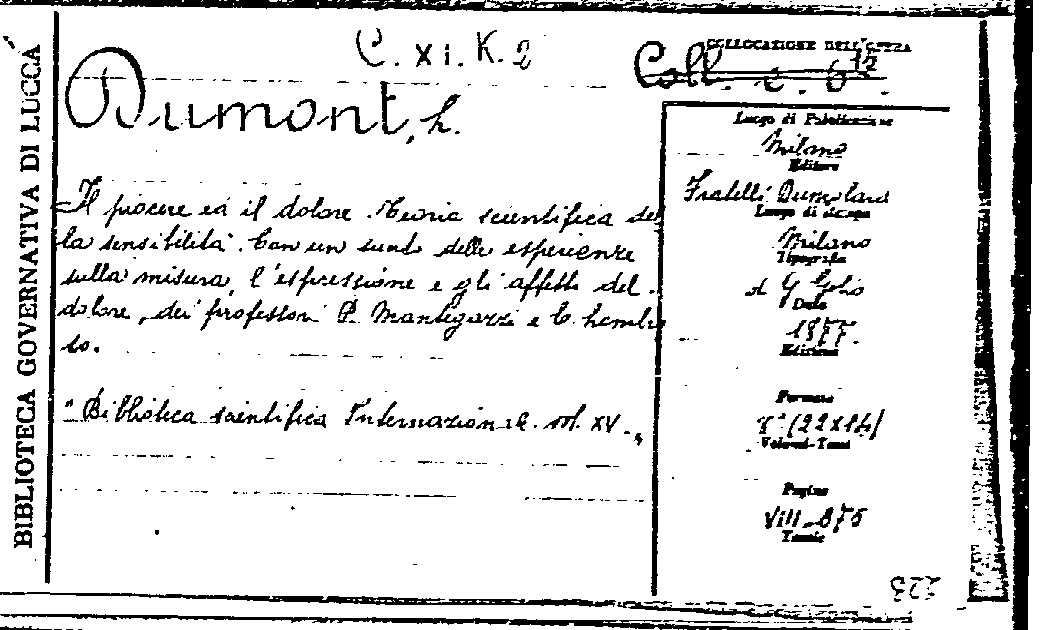 BIBLIOTECA GOVERNATIVA DI LUCCA
C. XI. K. 2
COLLOCAZIONE DELL'OPERA
Coll. c. 6 12
Dumont, L.
Il piacere ed il dolore. Teoria scientifica del
la sensibilità. Con un sunto delle esperienze
sulla misura, l'espressione e gli effetti del
dolore, dei professori P. Mantegazza e C. Lombro
so.
"Biblioteca scientifica Internazionale. vol. XV.„
Luogo di Pubblicazione
Milano
Editore
Fratelli Dumolard
Luogo di stampa
Milano
Tipografia
Data
1877.
Edizioni
Formato
8° (22x14)
Volumi-Tomi
Pagine
VIII-375
Tavole
223